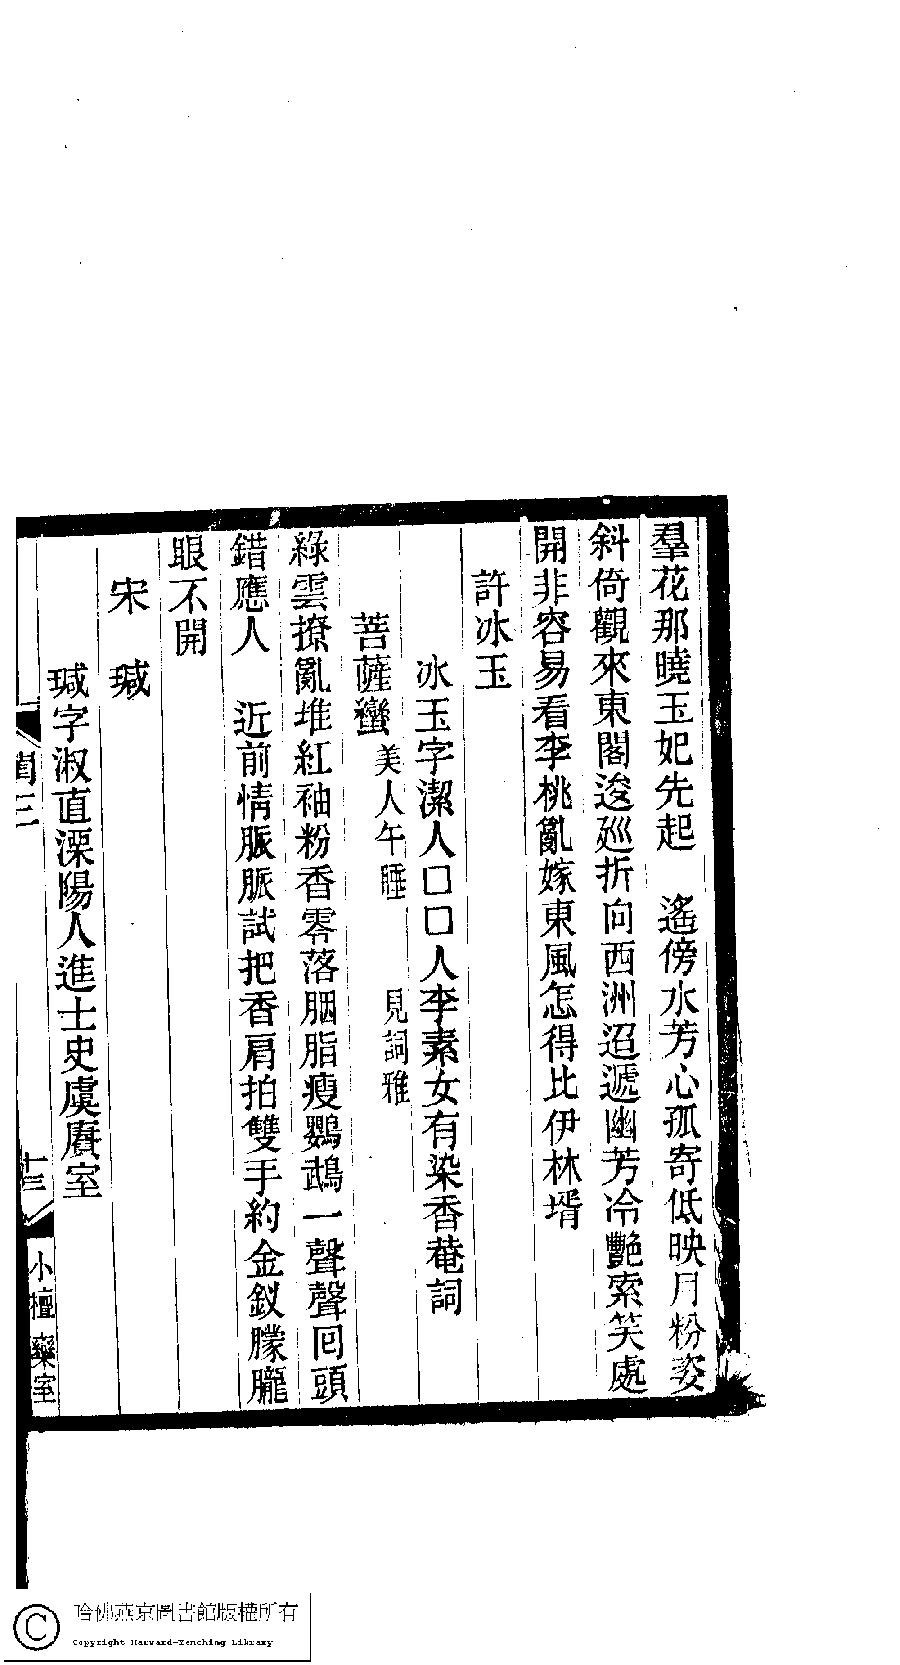 羣花那曉玉妃先起　遙傍水芳心孤寄低映月粉姿
斜倚觀來東閣逡廵折向西洲迢遞幽芳冷艷索笑處
開非容易看李桃亂嫁東風怎得比伊林壻
許冰玉
冰玉字潔人□□人李素女有染香菴詞
菩薩蠻 美人午睡　見詞雅
綠雲撩亂堆紅袖粉香零落胭脂瘦鸚鵡一聲聲囘頭
錯應人　近前情脈脈試把香肩拍雙手約金釵朦朧
眼不開
宋　瑊
瑊字淑直溧陽人進士史虞賡室
閨三
十三
小檀欒室
哈佛燕京圖書館版權所有
Copyright Harvard-Yenching Library